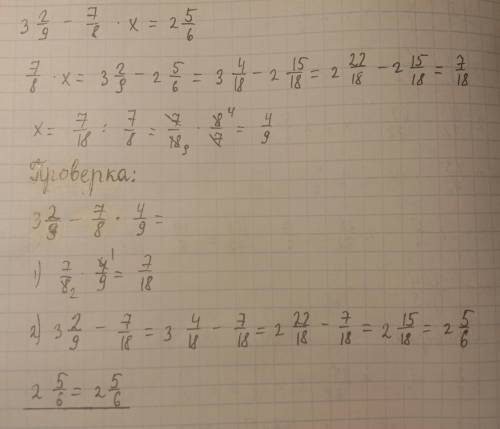 3 2/9 - 7/8 · x = 2 5/6
7/8 · x = 3 2/9 - 2 5/6 = 3 4/18 - 2 15/18 = 2 22/18 - 2 15/18 = 7/18
x = 7/18 : 7/8 = 7/18 9 · 8 4/7 = 4/9
Проверка:
3 2/9 - 7/8 · 4/9 =
1) 7/8 2 · 4 1/9 = 7/18
2) 3 2/9 - 7/18 = 3 4/18 - 7/18 = 2 22/18 - 7/18 = 2 15/18 = 2 5/6
2 5/6 = 2 5/6